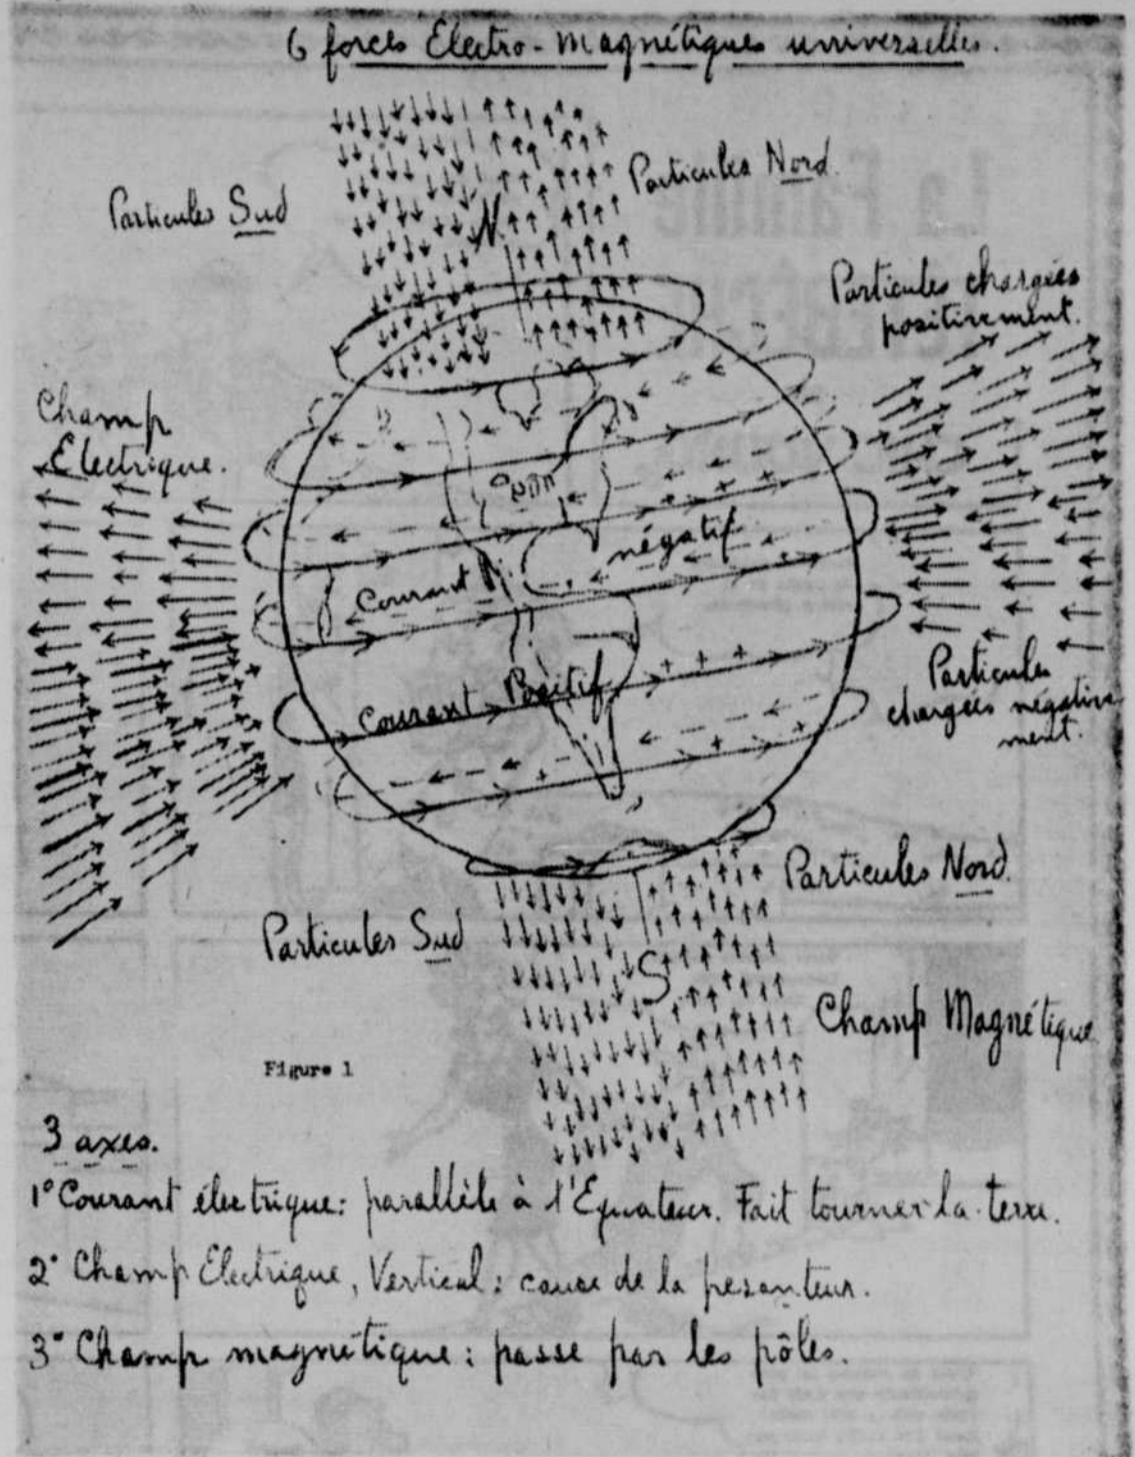 6 forces Électro-Magnétiques universelles.
Particules Nord.
Particules Sud
N.
Particules chargées
positivement.
Champ
Électrique.
négatif
Courant N.
Particules
chargées négative
ment.
Courant Positif
Particules Nord.
Particules Sud
S
Champ Magnétique
Figure 1
3 axes.
1° Courant électrique: parallèle à l'Equateur. Fait tourner la terre.
2° Champ Electrique, Vertical: cause de la pesanteur.
3° Champ magnétique: passe par les pôles.